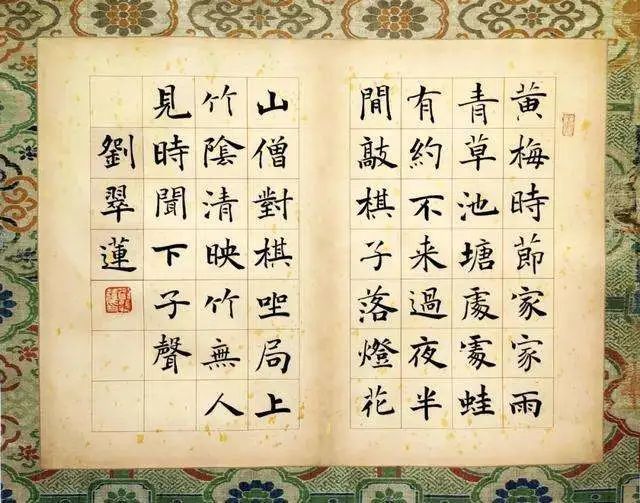 黃梅時節家家雨
青草池塘處處蛙
有約不来過夜半
間敲棋子落燈花
山僧對棋坐局上
竹陰清映竹無人
見時聞下子聲
劉翠蓮